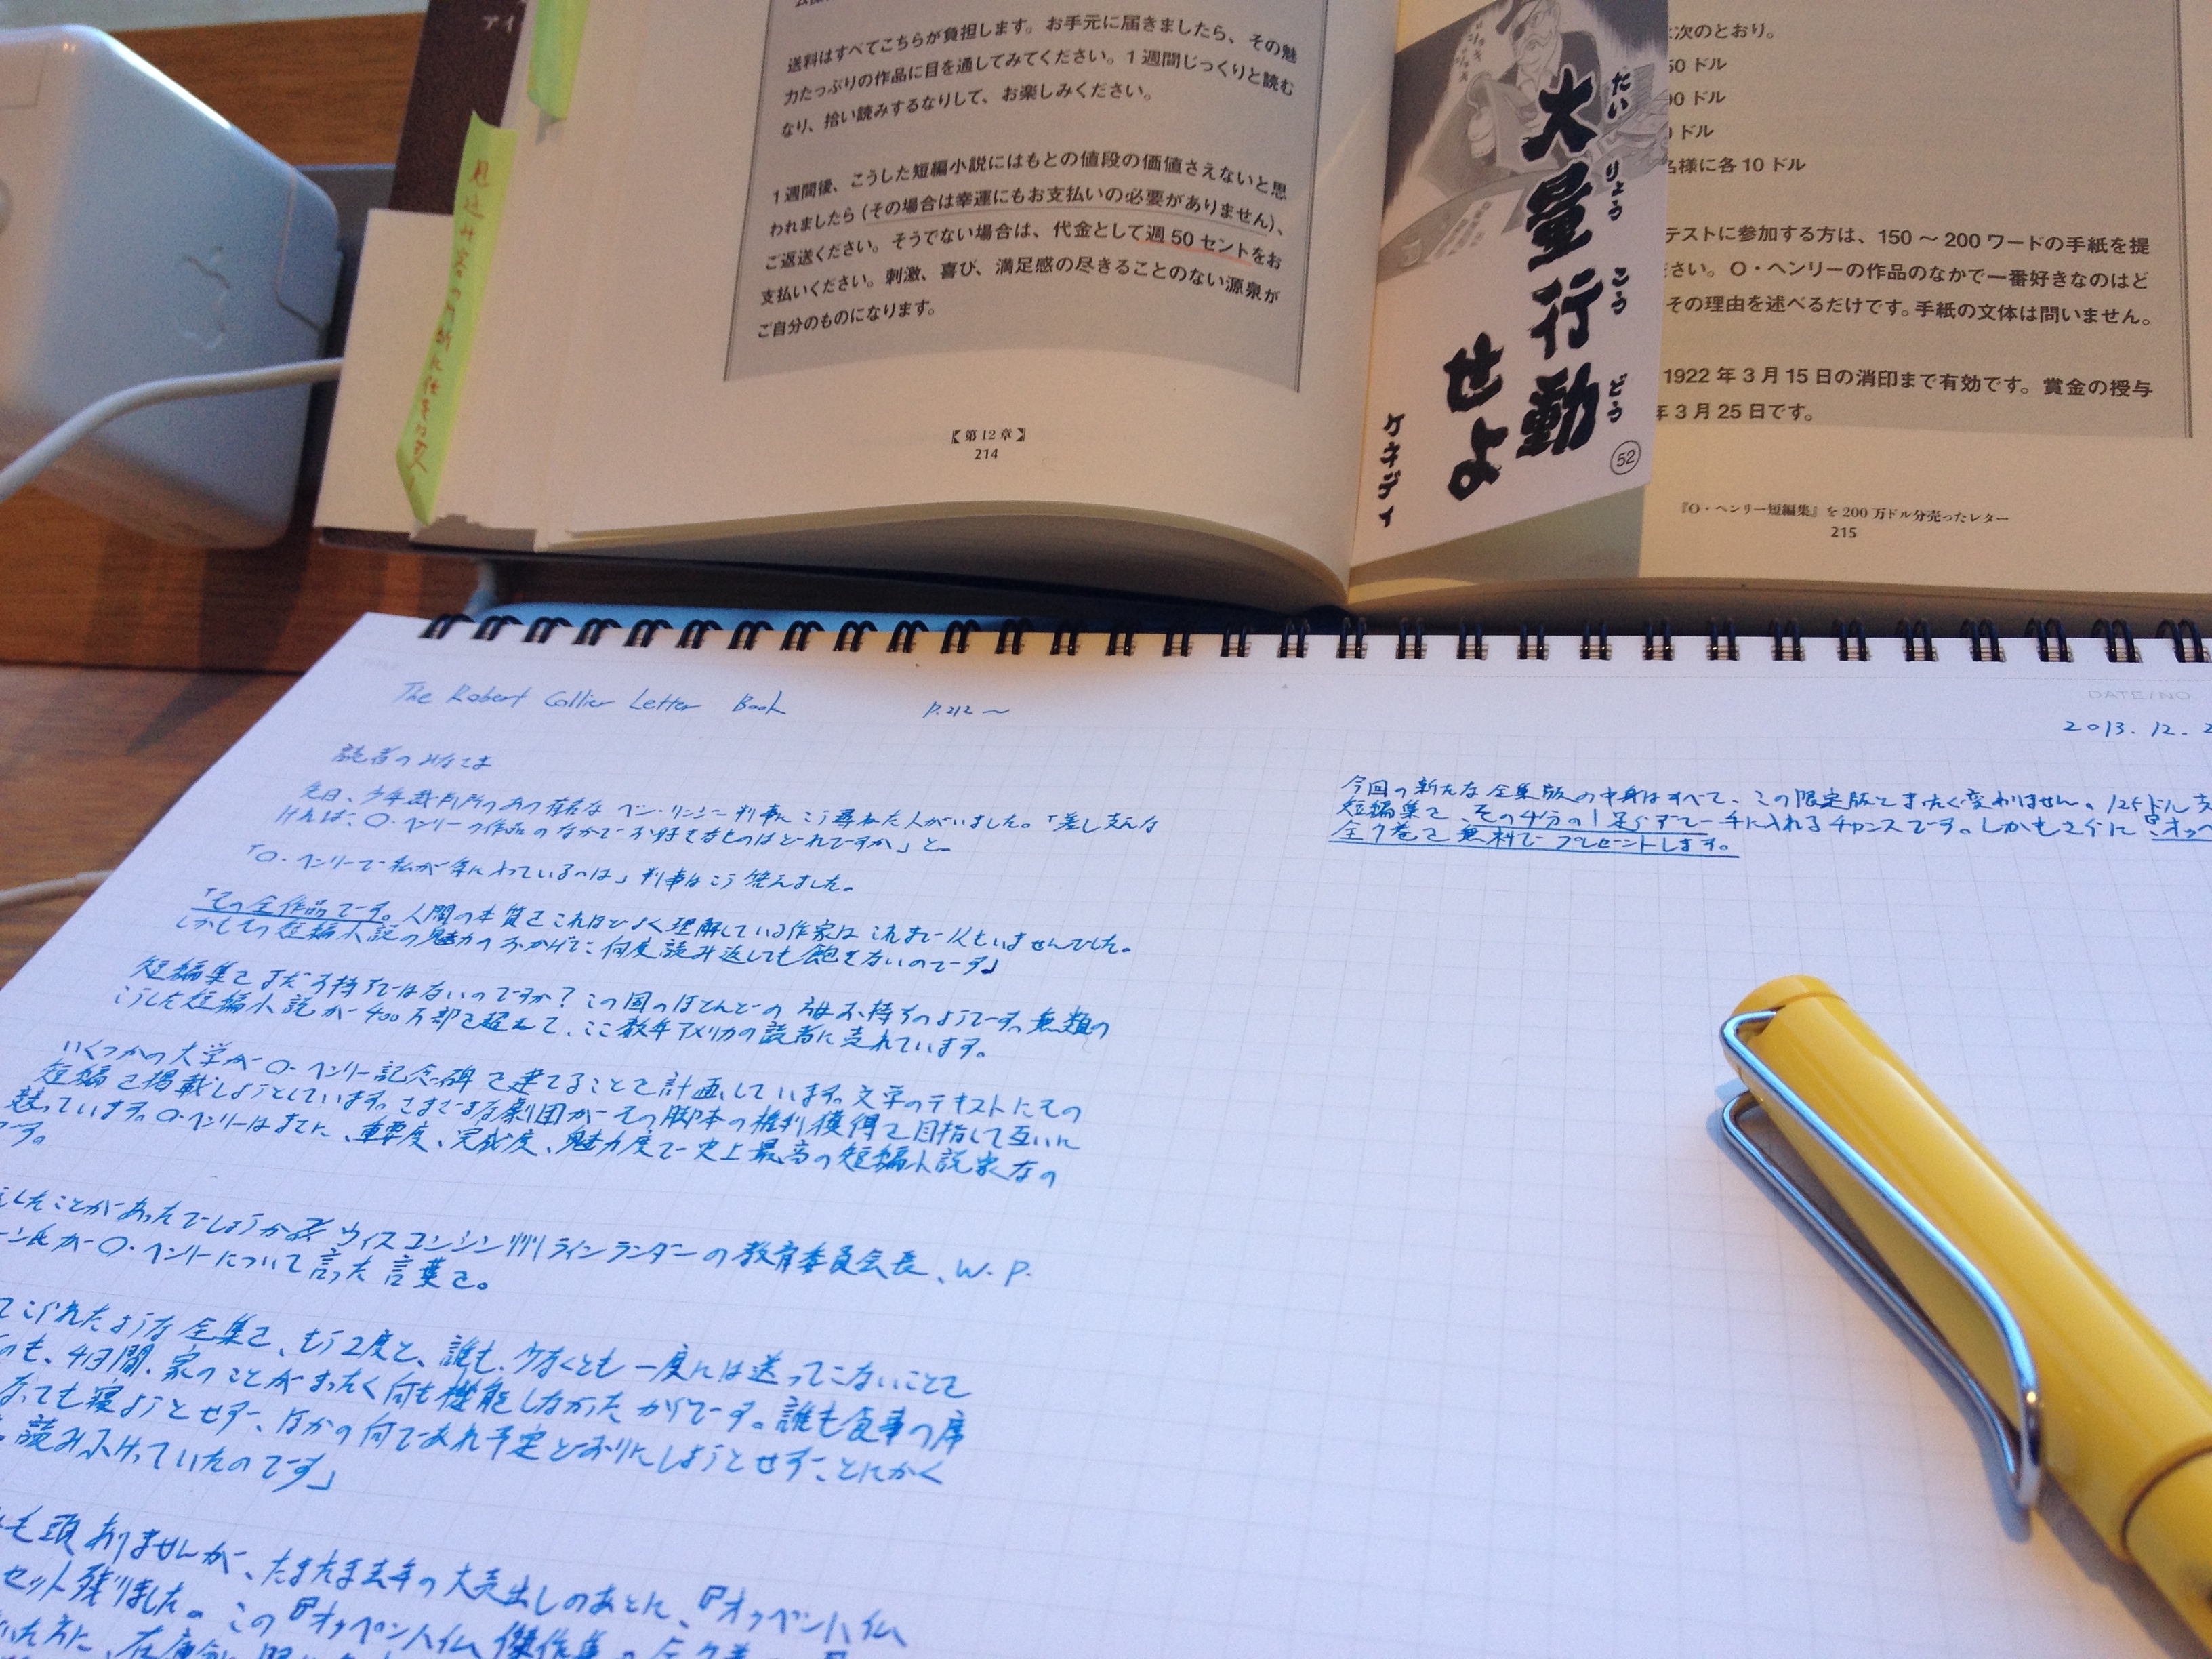 アイ
送料はすべてこちらが負担します。お手元に届きましたら、その魅
力たっぷりの作品に目を通してみてください。1週間じっくりと読む
なり、拾い読みするなりして、お楽しみください。
1週間後、こうした短編小説にはもとの値段の価値さえないと思
われましたら(その場合は幸運にもお支払いの必要がありません)、
ご返送ください。そうでない場合は、代金として週50セントをお
支払いください。刺激、喜び、満足感の尽きることのない源泉が
ご自分のものになります。
【第12章】
214
大量行動
たいりょうこうどう
せよ
ケネディ
52
次のとおり。
50ドル
ドル
ドル
名様に各10ドル
テストに参加する方は、150～200ワードの手紙を提
さい。O・ヘンリーの作品のなかで一番好きなのはど
その理由を述べるだけです。手紙の文体は問いません。
1922年3月15日の消印まで有効です。賞金の授与
年3月25日です。
『O・ヘンリー短編集』を200万ドル分売ったレター
215
DATE/NO.
The Robert Collier Letter Book P.212～
2013.12.2
読者のみなさま
先日、少年裁判所のあの有名なベン・リンジー判事にこう尋ねた人がいました。「差し支えな
ければ、O・ヘンリーの作品のなかでお好きなものはどれですか」と。
「O・ヘンリーで私が気に入っているのは」判事はこう答えました。
「その全作品です。人間の本質をこれほどよく理解している作家はこれまで1人もいませんでした。
しかもその短編小説の魅力のおかげで、何度読み返しても飽きないのです」
短編集をまだお持ちではないのですか?この国のほとんどの方はお持ちのようです。無類の
こうした短編小説が400万部を超えて、ここ数年アメリカの読者に売れています。
いくつかの大学がO・ヘンリー記念碑を建てることを計画しています。文学のテキストにその
短編を掲載しようとしています。さまざまな劇団がその脚本の権利獲得を目指して互いに
競っています。O・ヘンリーはまさに、重要度、完成度、魅力度で史上最高の短編小説家なの
です。
したことがあったでしょうか。ウィスコンシン州ラインランダーの教育委員会長、W.P.
ーン氏がO・ヘンリーについて言った言葉を。
てこられたような全集を、もう2度と、誰も、少なくとも一度には送ってこないことを
のも、4日間、家のことがまったく何も機能しなかったからです。誰も食事の席
なっても寝ようとせず、ほかの何であれ予定どおりにしようとせず、とにかく
読みふけっていたのです」
毛頭ありませんが、たまたま去年の大売出しのあとに、『オッペンハイム
セット残りました。この『オッペンハイム傑作集
今回の新たな全集版の中身はすべて、この限定版とまったく変わりません。125ドル
短編集を、その4分の1足らずで手に入れるチャンスです。しかもさらに『オッペ
全7巻を無料でプレゼントします。